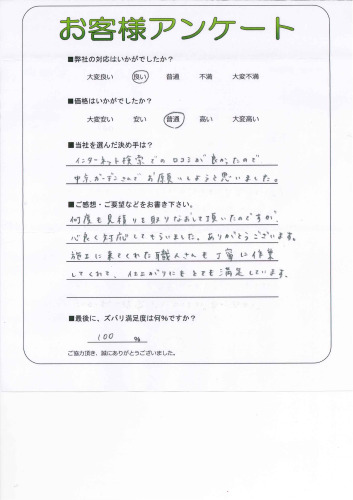 お客様アンケート
■弊社の対応はいかがでしたか？
大変良い　良い　普通　不満　大変不満
■価格はいかがでしたか？
大変安い　安い　普通　高い　大変高い
■当社を選んだ決め手は？
インターネット検索での口コミが良かったので
中京ガーデンさんでお願いしようと思いました。
■ご感想・ご要望などをお書き下さい。
何度も見積りを取りなおして頂いたのですが、
心良く対応してもらいました。ありがとうございます。
施工に来てくれた職人さんも丁寧に作業
してくれて、仕上がりにもとても満足しています。
■最後に、ズバリ満足度は何%ですか？
100 %
ご協力頂き、誠にありがとうございました。